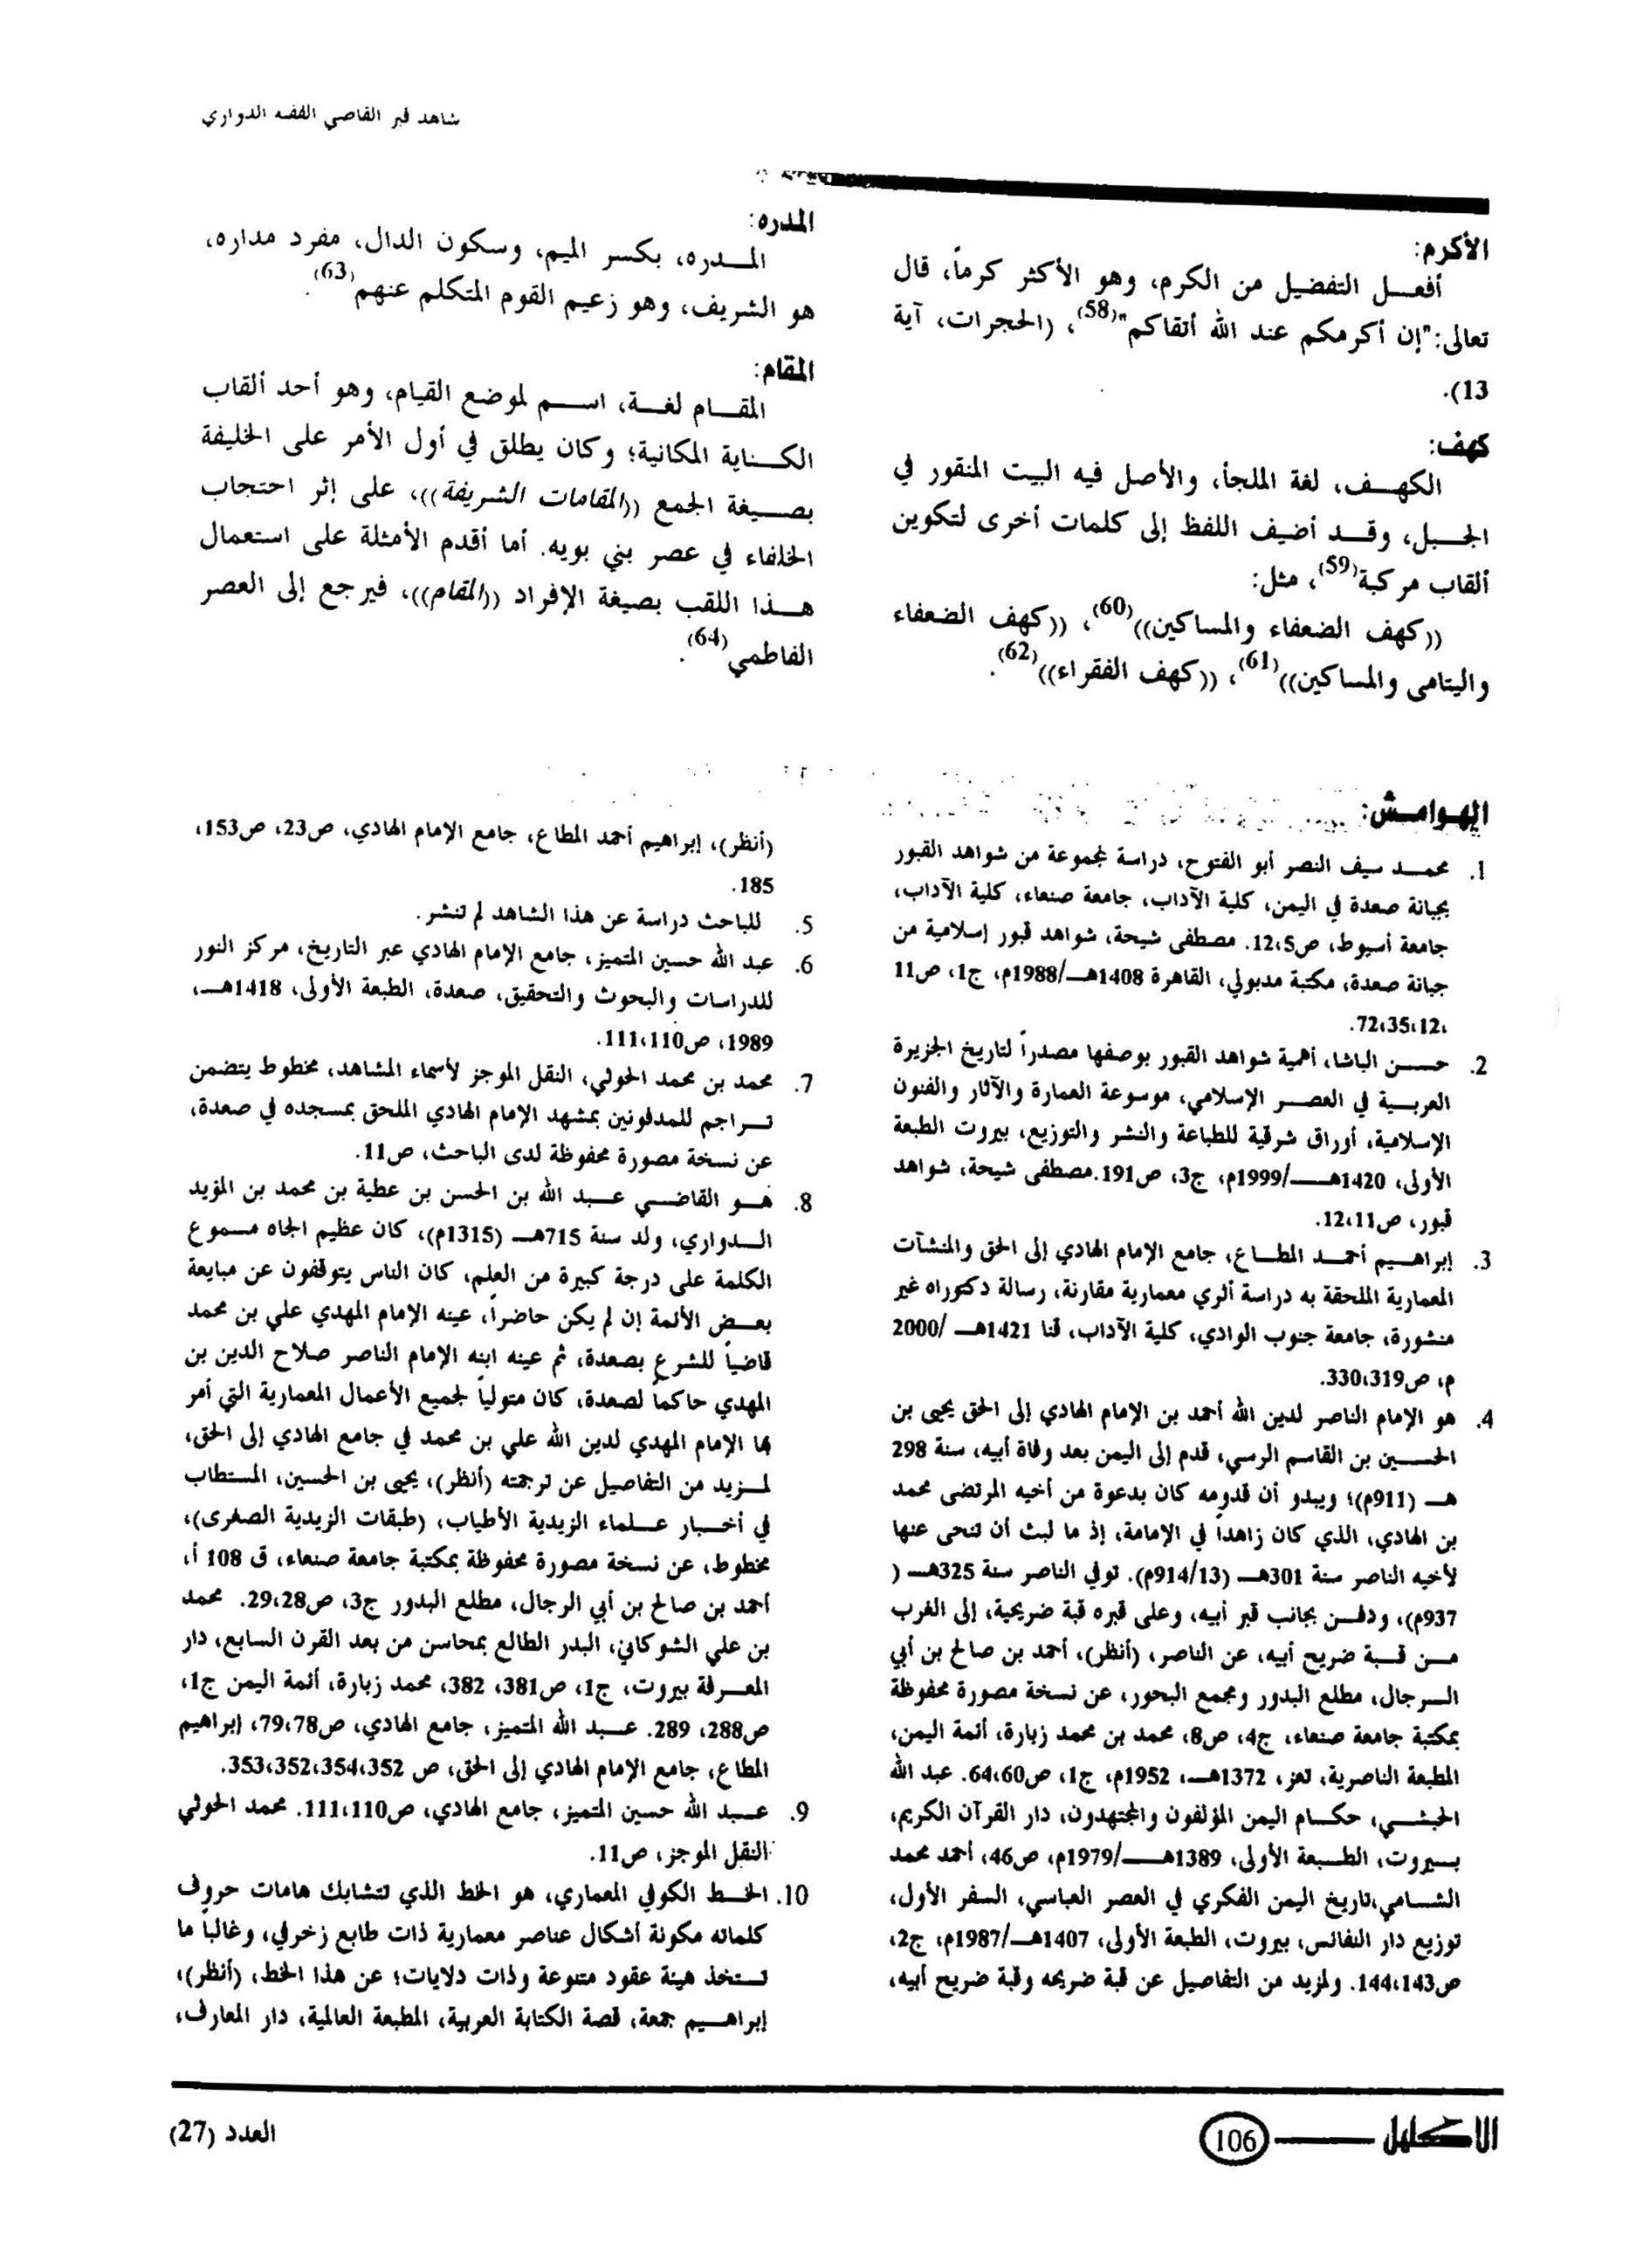 شاهد قبر القاضي الفقيه الدواري
الأكرم:
أفعل التفضيل من الكرم، وهو الأكثر كرماً، قال
تعالى:"إن أكرمكم عند الله أتقاكم"(58)، (الحجرات، آية
13).
كهف:
الكهف، لغة الملجأ، والأصل فيه البيت المنقور في
الجبل، وقد أضيف اللفظ إلى كلمات أخرى لتكوين
ألقاب مركبة(59)، مثل:
((كهف الضعفاء والمساكين))(60)، ((كهف الضعفاء
واليتامى والمساكين))(61)، ((كهف الفقراء))(62).
المدره:
المدره، بكسر الميم، وسكون الدال، مفرد مداره،
هو الشريف، وهو زعيم القوم المتكلم عنهم(63).
المقام:
المقام لغة، اسم لموضع القيام، وهو أحد ألقاب
الكناية المكانية؛ وكان يطلق في أول الأمر على الخليفة
بصيغة الجمع ((المقامات الشريفة))، على إثر احتجاب
الخلفاء في عصر بني بويه. أما أقدم الأمثلة على استعمال
هذا اللقب بصيغة الإفراد ((المقام))، فيرجع إلى العصر
الفاطمي(64).
الهوامش:
1. محمد سيف النصر أبو الفتوح، دراسة لمجموعة من شواهد القبور
بجبانة صعدة في اليمن، كلية الآداب، جامعة صنعاء، كلية الآداب،
جامعة أسيوط، ص12،5. مصطفى شيحة، شواهد قبور إسلامية من
جبانة صعدة، مكتبة مدبولي، القاهرة 1408هـ/1988م، ج1، ص11
،12،35،72.
2. حسن الباشا، أهمية شواهد القبور بوصفها مصدراً لتاريخ الجزيرة
العربية في العصر الإسلامي، موسوعة العمارة والآثار والفنون
الإسلامية، أوراق شرقية للطباعة والنشر والتوزيع، بيروت الطبعة
الأولى، 1420هـ/1999م، ج3، ص191.مصطفى شيحة، شواهد
قبور، ص12،11.
3. إبراهيم أحمد المطاع، جامع الإمام الهادي إلى الحق والمنشآت
المعمارية الملحقة به دراسة أثري معمارية مقارنة، رسالة دكتوراه غير
منشورة، جامعة جنوب الوادي، كلية الآداب، قنا 1421هـ /2000
م، ص330،319.
4. هو الإمام الناصر لدين الله أحمد بن الإمام الهادي إلى الحق يحيى بن
الحسين بن القاسم الرسي، قدم إلى اليمن بعد وفاة أبيه، سنة 298
هـ (911م)؛ ويبدو أن قدومه كان بدعوة من أخيه المرتضى محمد
بن الهادي، الذي كان زاهداً في الإمامة، إذ ما لبث أن تنحى عنها
لأخيه الناصر سنة 301هـ (914/13م). توفي الناصر سنة 325هـ (
937م)، ودفن بجانب قبر أبيه، وعلى قبره قبة ضريحية، إلى الغرب
من قبة ضريح أبيه، عن الناصر، (أنظر)، أحمد بن صالح بن أبي
الرجال، مطلع البدور ومجمع البحور، عن نسخة مصورة محفوظة
بمكتبة جامعة صنعاء، ج4، ص8، محمد بن محمد زبارة، أئمة اليمن،
المطبعة الناصرية، تعز، 1372هـ، 1952م، ج1، ص64،60. عبد الله
الحبشي، حكام اليمن المؤلفون والمجتهدون، دار القرآن الكريم،
بيروت، الطبعة الأولى، 1389هـ/1979م، ص46، أحمد محمد
الشامي،تاريخ اليمن الفكري في العصر العباسي، السفر الأول،
توزيع دار النفائس، بيروت، الطبعة الأولى، 1407هـ/1987م، ج2،
ص144،143. ولمزيد من التفاصيل عن قبة ضريحه وقبة ضريح أبيه،
(أنظر)، إبراهيم أحمد المطاع، جامع الإمام الهادي، ص23، ص153،
185.
5. للباحث دراسة عن هذا الشاهد لم تنشر.
6. عبد الله حسين المتميز، جامع الإمام الهادي عبر التاريخ، مركز النور
للدراسات والبحوث والتحقيق، صعدة، الطبعة الأولى، 1418هـ،
1989، ص111،110.
7. محمد بن محمد الحوثي، النقل الموجز لأسماء المشاهد، مخطوط يتضمن
تراجم للمدفونين بمشهد الإمام الهادي الملحق بمسجده في صعدة،
عن نسخة مصورة محفوظة لدى الباحث، ص11.
8. هو القاضي عبد الله بن الحسن بن عطية بن محمد بن المؤيد
الدواري، ولد سنة 715هـ (1315م)، كان عظيم الجاه مسموع
الكلمة على درجة كبيرة من العلم، كان الناس يتوقفون عن مبايعة
بعض الأئمة إن لم يكن حاضراً، عينه الإمام المهدي علي بن محمد
قاضياً للشرع بصعدة، ثم عينه ابنه الإمام الناصر صلاح الدين بن
المهدي حاكماً لصعدة، كان متولياً لجميع الأعمال المعمارية التي أمر
بها الإمام المهدي لدين الله علي بن محمد في جامع الهادي إلى الحق،
لمزيد من التفاصيل عن ترجمته (أنظر)، يحيى بن الحسين، المستطاب
في أخبار علماء الزيدية الأطياب، (طبقات الزيدية الصغرى)،
مخطوط، عن نسخة مصورة محفوظة بمكتبة جامعة صنعاء، ق 108 أ،
أحمد بن صالح بن أبي الرجال، مطلع البدور ج3، ص29،28. محمد
بن علي الشوكاني، البدر الطالع بمحاسن من بعد القرن السابع، دار
المعرفة بيروت، ج1، ص381، 382، محمد زبارة، أئمة اليمن ج1،
ص288، 289. عبد الله المتميز، جامع الهادي، ص79،78، إبراهيم
المطاع، جامع الإمام الهادي إلى الحق، ص 353،352،354،352.
9. عبد الله حسين المتميز، جامع الهادي، ص111،110. محمد الحوثي
النقل الموجز، ص11.
10. الخط الكوفي المعماري، هو الخط الذي تتشابك هامات حروف
كلماته مكونة أشكال عناصر معمارية ذات طابع زخرفي، وغالباً ما
تستخذ هيئة عقود متنوعة وذات دلايات؛ عن هذا الخط، (أنظر)،
إبراهيم جمعة، قصة الكتابة العربية، المطبعة العالمية، دار المعارف،
الاكليل 106
العدد (27)